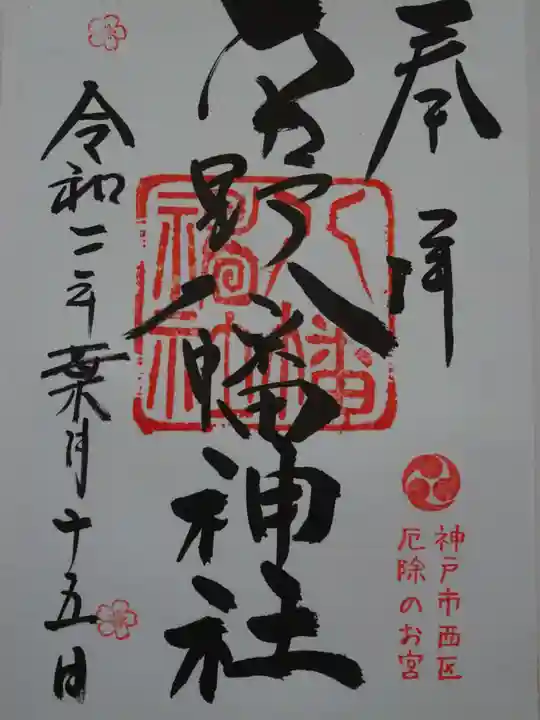 奉拝
野八幡神社
八幡
神社
令和二年葉月十五日
神戸市西区
厄除のお宮